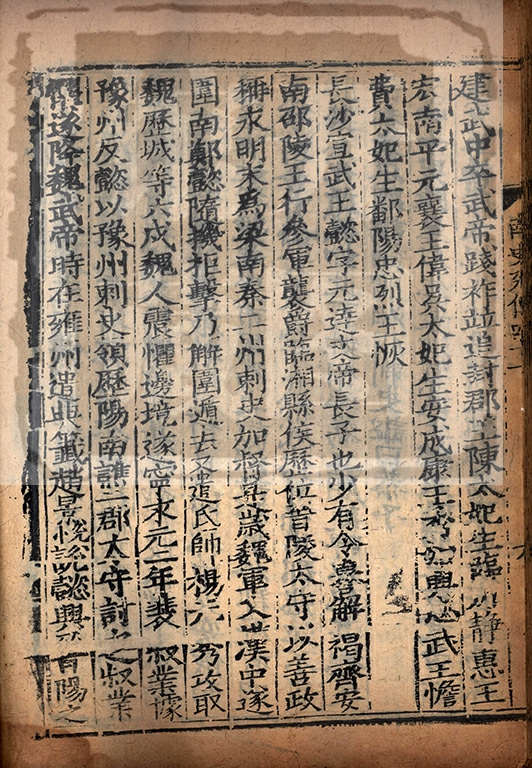 建武中卒武帝踐祚並追封郡王陳太妃生臨川靜惠王
宏南平元襄王偉吳太妃生安成康王秀始興忠武王憺
費太妃生鄱陽忠烈王恢
長沙宣武王懿字元達文帝長子也少有令譽解褐齊安
南邵陵王行參軍襲爵臨湘縣侯歷位晉陵太守以善政
稱永明末為梁南秦二州刺史加督是歲魏軍入漢中遂
圍南鄭懿隨機拒擊乃解圍遁去又遣氏帥楊元秀攻取
魏歷城等六戍魏人震懼邊境遂寧永元二年裴叔業據
豫州反懿以豫州刺史領歷陽南譙二郡太守討之叔業
懼遂降魏武帝時在雍州遣典籤趙景悅說懿興晉陽之
南史列傳